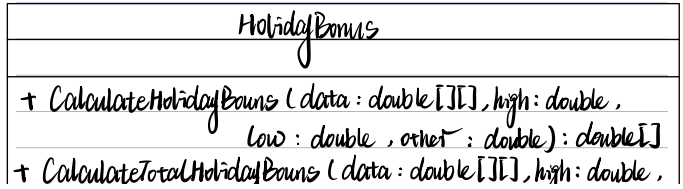 HolidayBonus
+ CalculateHolidayBouns (data : double[][], high : double,
low : double , other : double) : double[]
+ CalculateTotalHolidayBouns (data : double[][], high : double,